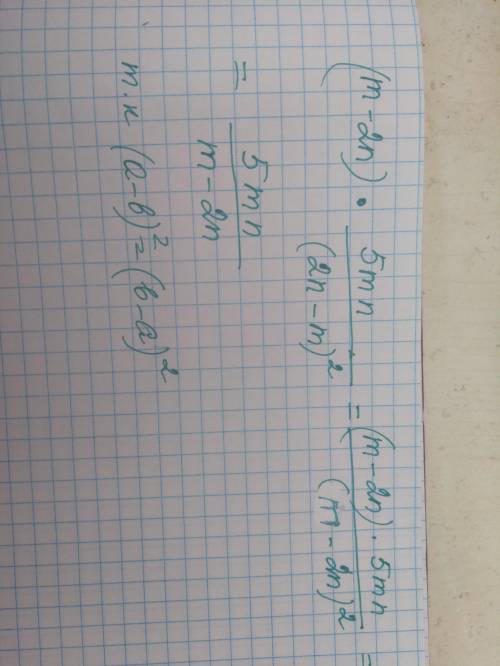 (m - 2n) · 5mn / (2n - m)² = (m - 2n) · 5mn / (m - 2n)² =
= 5mn / m - 2n
т.к (a-b)² = (b-a)²